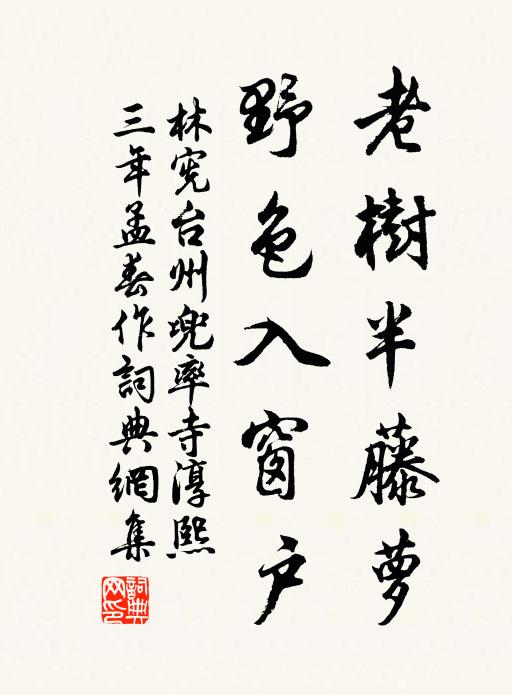 老樹半藤萝
野色入窗户
林宪台州兜率寺淳熙
三年孟春作詞典網集
詞典
网印